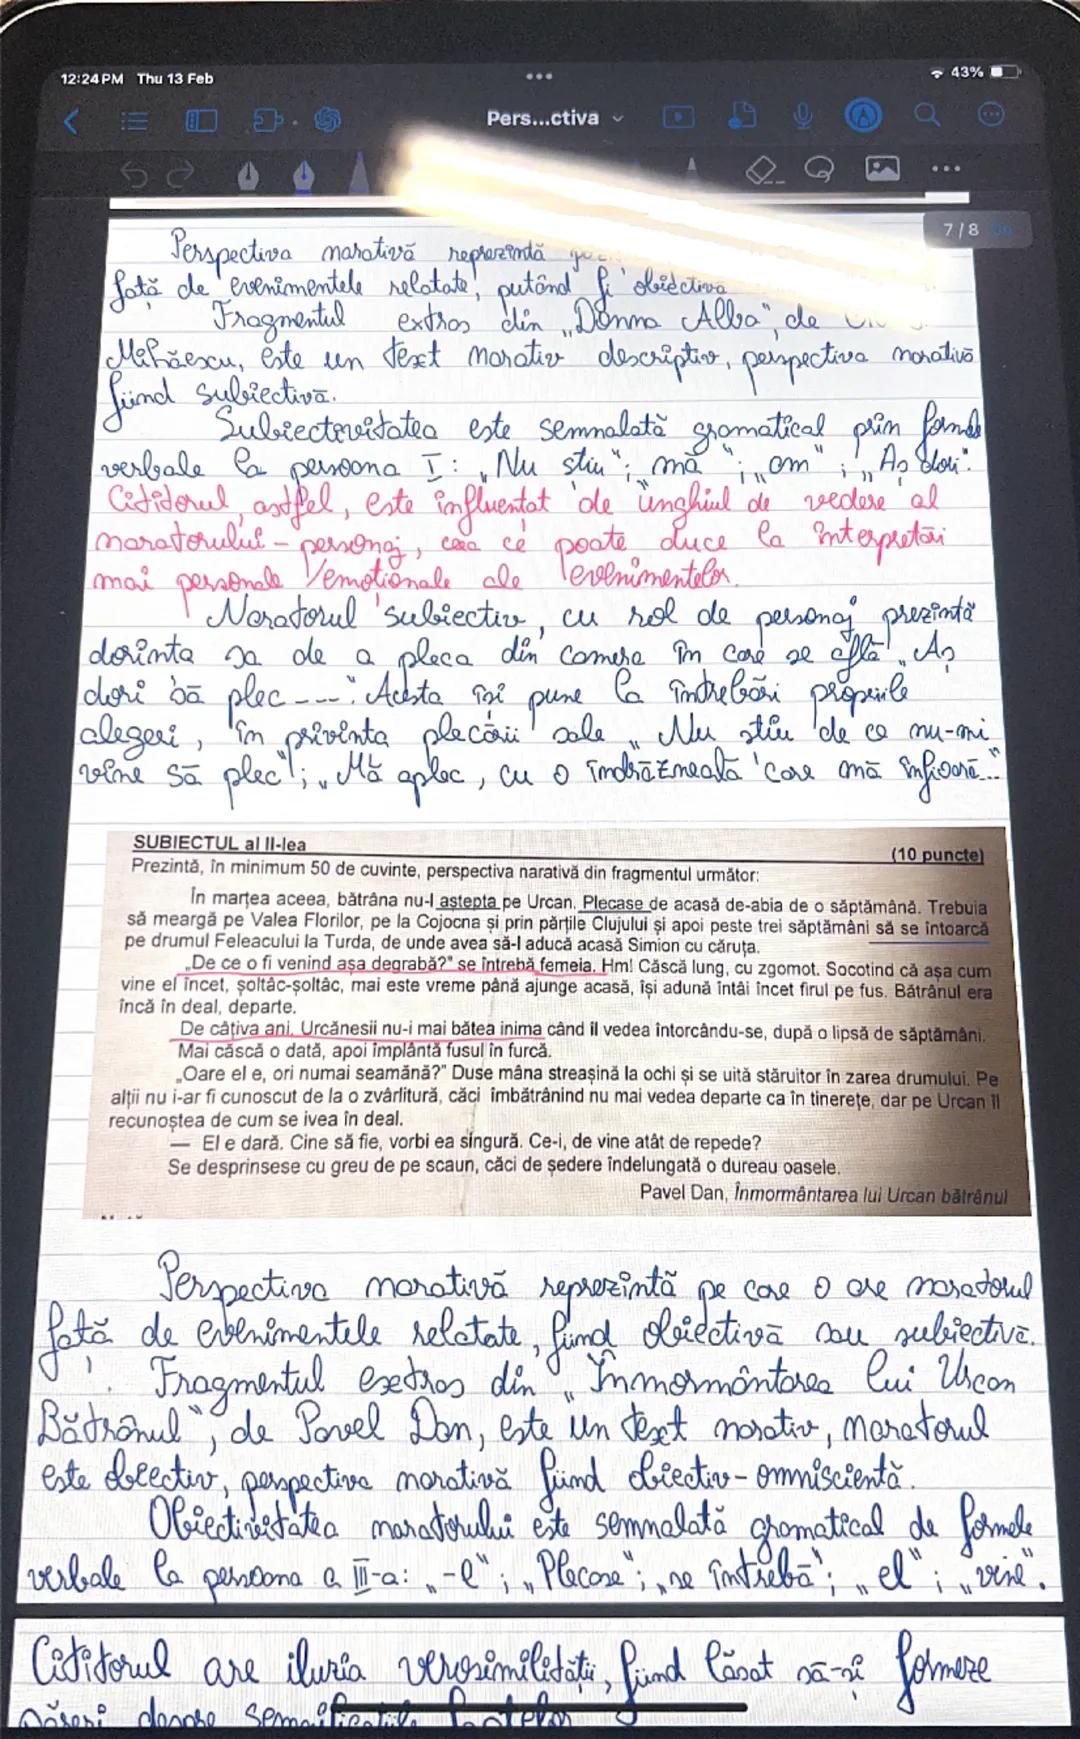 12:24 PM Thu 13 Feb
43%
Pers...ctiva
7/8
Perspectiva narativă reprezintă
față de evenimentele relatate, putând fi obiectivă
Fragmentul extras din „Donna Alba", de
Mihăescu, este un text narativ descriptiv, perspectiva narativă
fiind subiectivă.
Subiectivitatea este semnalată gramatical prin formele
verbale la persoana I: „Nu știu"; „mă"; „am"; „Aș dori".
Cititorul, astfel, este influențat de unghiul de vedere al
naratorului - personaj, ceea ce poate duce la interpretări
mai personale / emoționale ale evenimentelor.
Naratorul subiectiv, cu rol de personaj prezintă
dorința sa de a pleca din camera în care se află „Aș
dori să plec ---". Acesta își pune la întrebări propriile
alegeri, în privința plecării sale „Nu știu de ce nu-mi
vine să plec"; „Mă aplec, cu o îndrăzneală care mă înfioară..."
SUBIECTUL al II-lea
(10 puncte)
Prezintă, în minimum 50 de cuvinte, perspectiva narativă din fragmentul următor:
În marțea aceea, bătrâna nu-l aștepta pe Urcan. Plecase de acasă de-abia de o săptămână. Trebuia
să meargă pe Valea Florilor, pe la Cojocna și prin părțile Clujului și apoi peste trei săptămâni să se întoarcă
pe drumul Feleacului la Turda, de unde avea să-l aducă acasă Simion cu căruța.
„De ce o fi venind așa degrabă?" se întrebă femeia. Hm! Căscă lung, cu zgomot. Socotind că așa cum
vine el încet, șoltâc-șoltâc, mai este vreme până ajunge acasă, își adună întâi încet firul pe fus. Bătrânul era
încă în deal, departe.
De câțiva ani, Urcănesii nu-i mai bătea inima când îl vedea întorcându-se, după o lipsă de săptămâni.
Mai căscă o dată, apoi împlântă fusul în furcă.
„Oare el e, ori numai seamănă?" Duse mâna streașină la ochi și se uită stăruitor în zarea drumului. Pe
alții nu i-ar fi cunoscut de la o zvârlitură, căci îmbătrânind nu mai vedea departe ca în tinerețe, dar pe Urcan îl
recunoștea de cum se ivea în deal.
— El e dară. Cine să fie, vorbi ea singură. Ce-i, de vine atât de repede?
Se desprinsese cu greu de pe scaun, căci de ședere îndelungată o dureau oasele.
Pavel Dan, Înmormântarea lui Urcan bătrânul
Perspectiva narativă reprezintă pe care o are naratorul
față de evenimentele relatate, fiind obiectivă sau subiectivă.
Fragmentul extras din „Înmormântarea lui Urcan
Bătrânul", de Pavel Dan, este un text narativ, naratorul
este obiectiv, perspectiva narativă fiind obiectiv-omniscientă.
Obiectivitatea naratorului este semnalată gramatical de formele
verbale la persoana a III-a: „-l"; „Plecase"; „se întrebă"; „el"; „vine".
Cititorul are iluzia verosimilității, fiind lăsat să-și formeze
păreri despre semnificațiile faptelor